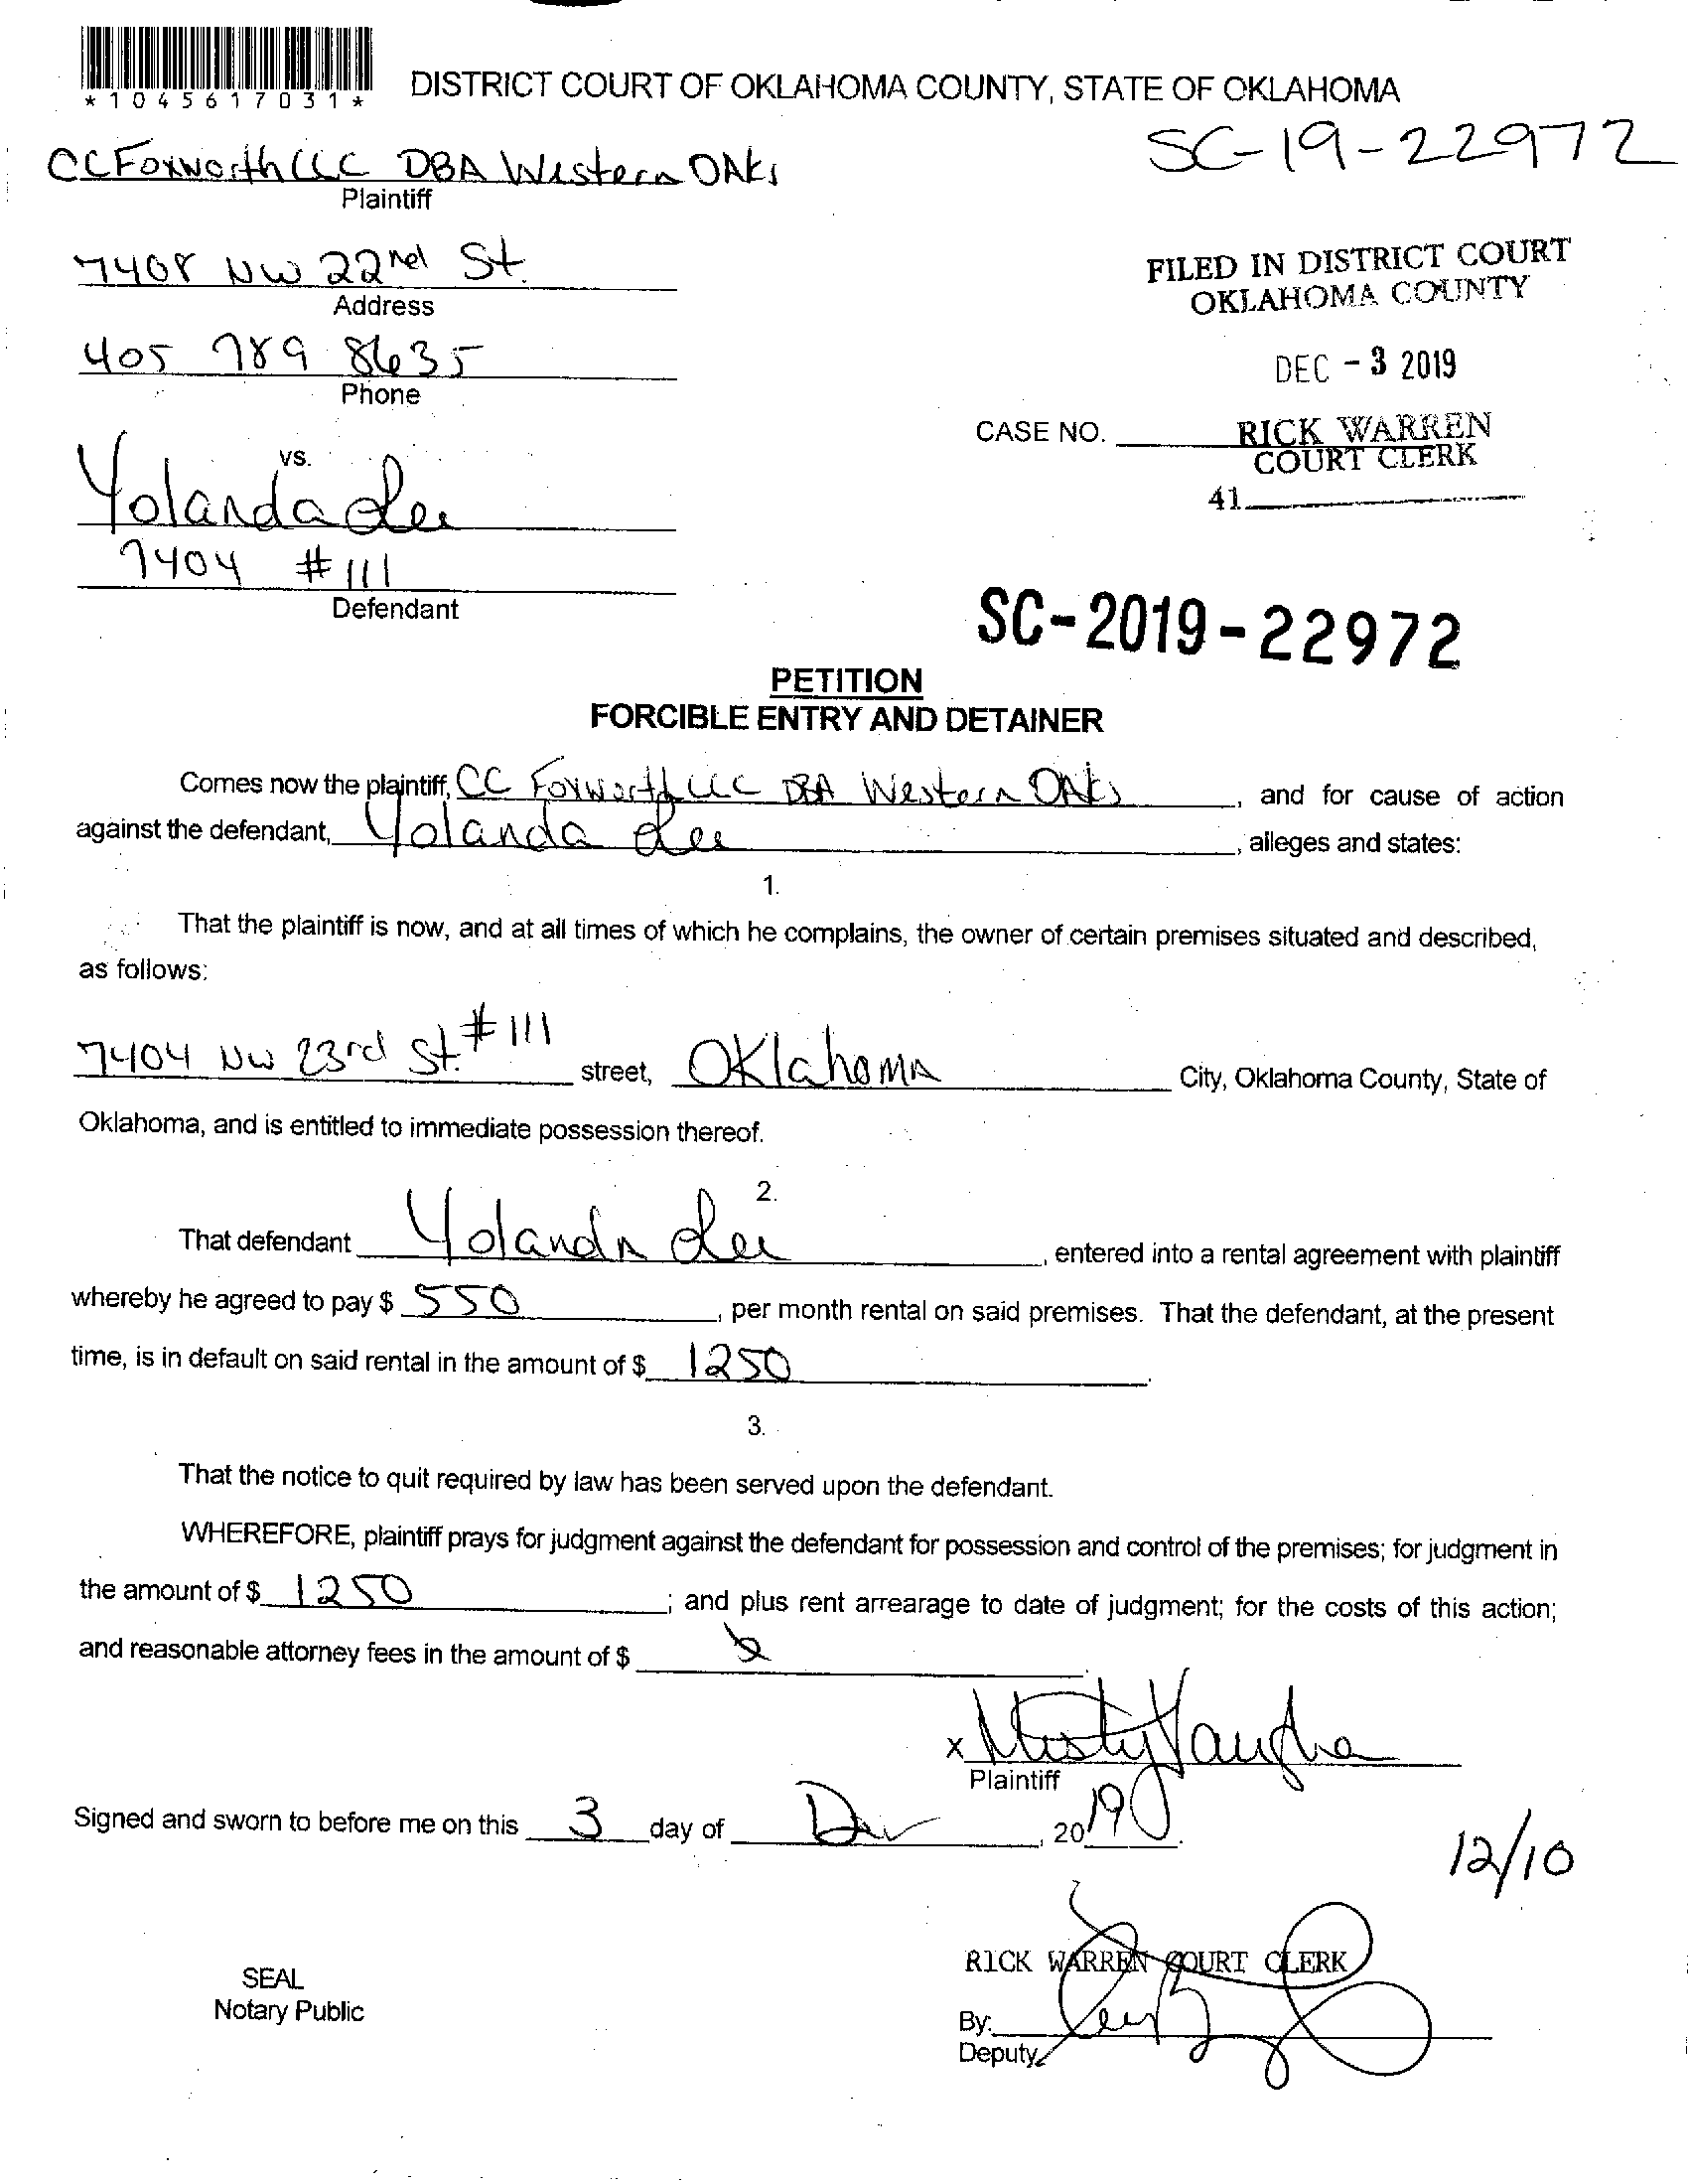 *1045617031*
DISTRICT COURT OF OKLAHOMA COUNTY, STATE OF OKLAHOMA
SC-19-22972
CC Foxworth LLC DBA Western OAks
Plaintiff
7408 NW 22nd St.
Address
405 789 8635
Phone
FILED IN DISTRICT COURT
OKLAHOMA COUNTY
DEC - 3 2019
CASE NO. RICK WARREN
COURT CLERK
41
vs.
Yolanda Lee
7404 #111
Defendant
SC-2019-22972
PETITION
FORCIBLE ENTRY AND DETAINER
Comes now the plaintiff, CC Foxworth LLC DBA Western OAks, and for cause of action
against the defendant, Yolanda Lee, alleges and states:
1.
That the plaintiff is now, and at all times of which he complains, the owner of certain premises situated and described,
as follows:
7404 NW 23rd St. #111 street, OKlahomA City, Oklahoma County, State of
Oklahoma, and is entitled to immediate possession thereof.
2.
That defendant Yolanda Lee, entered into a rental agreement with plaintiff
whereby he agreed to pay $ 550, per month rental on said premises. That the defendant, at the present
time, is in default on said rental in the amount of $ 1250.
3.
That the notice to quit required by law has been served upon the defendant.
WHEREFORE, plaintiff prays for judgment against the defendant for possession and control of the premises; for judgment in
the amount of $ 1250; and plus rent arrearage to date of judgment; for the costs of this action;
and reasonable attorney fees in the amount of $
x Misty Vaughn
Plaintiff
Signed and sworn to before me on this 3 day of Dec, 2019.
12/10
RICK WARREN COURT CLERK
SEAL
Notary Public
By:
Deputy